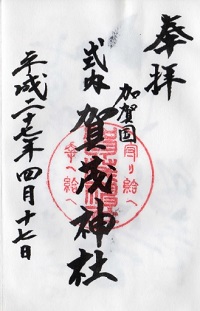 奉拝
加賀国
式内
賀茂神社
守り給へ
幸へ給へ
平成二十七年四月十七日